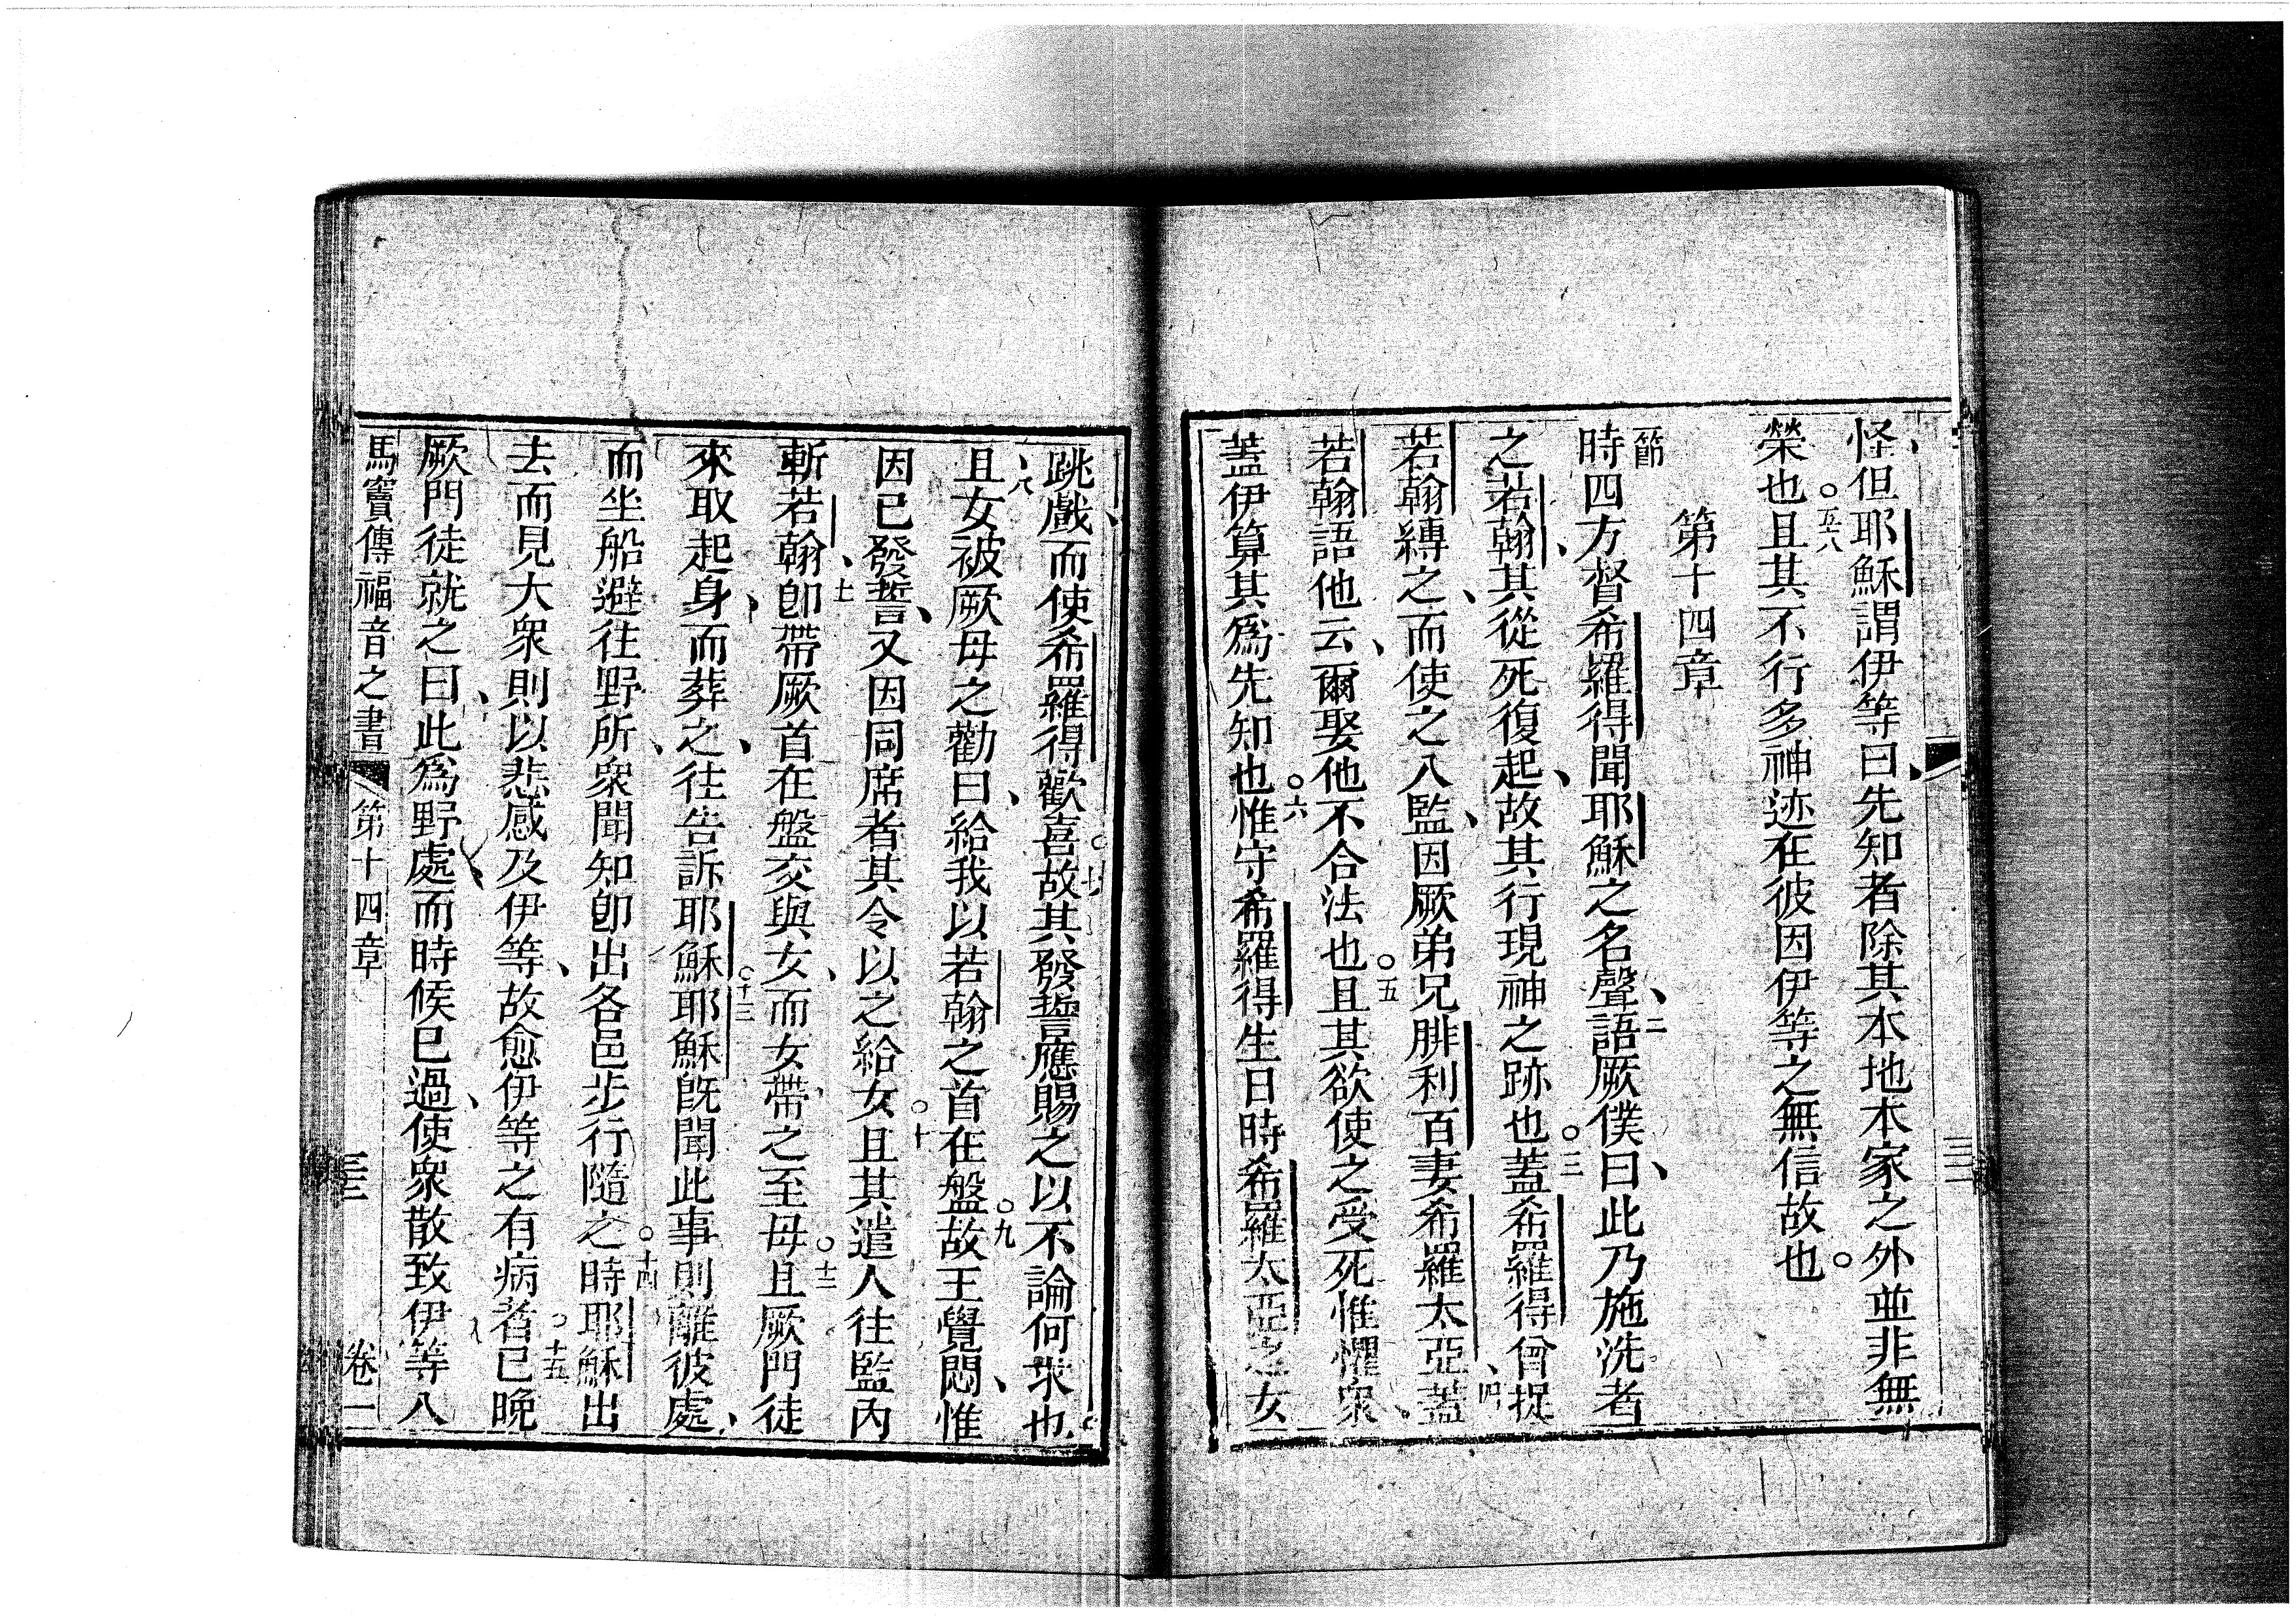 怪但耶穌謂伊等曰、先知者除其本地本家之外並非無
榮也。五八且其不行多神迹在彼因伊等之無信故也。
第十四章
一節時四方督希羅得聞耶穌之名聲、二語厥僕曰、此乃施洗者
之若翰、其從死復起、故其行現神之跡也。三蓋希羅得曾捉
若翰縛之、而使之入監、因厥弟兄腓利百妻希羅太亞、四蓋
若翰語他云、爾娶他不合法也。五且其欲使之受死惟懼衆、
蓋伊算其爲先知也。六惟守希羅得生日時希羅太亞之女
跳戲、而使希羅得歡喜。七故其發誓應賜之以不論何求也。
、八且女被厥母之勸曰、給我以若翰之首在盤。九故王覺悶、惟
因已發誓、又因同席者其令以之給女。十且其遣人往監內
斬若翰、十一卽帶厥首在盤交與女、而女帶之至母。十二且厥門徒
來取起身、而葬之、往告訴耶穌。十三耶穌旣聞此事則離彼處、
而坐船避往野所、衆聞知卽出各邑步行隨之。十四時耶穌出
去而見大衆則以悲感及伊等、故愈伊等之有病者。十五已晚
厥門徒就之曰、此爲野處、而時候已過、使衆散致伊等入
馬竇傳福音之書 第十四章 三十三 卷一